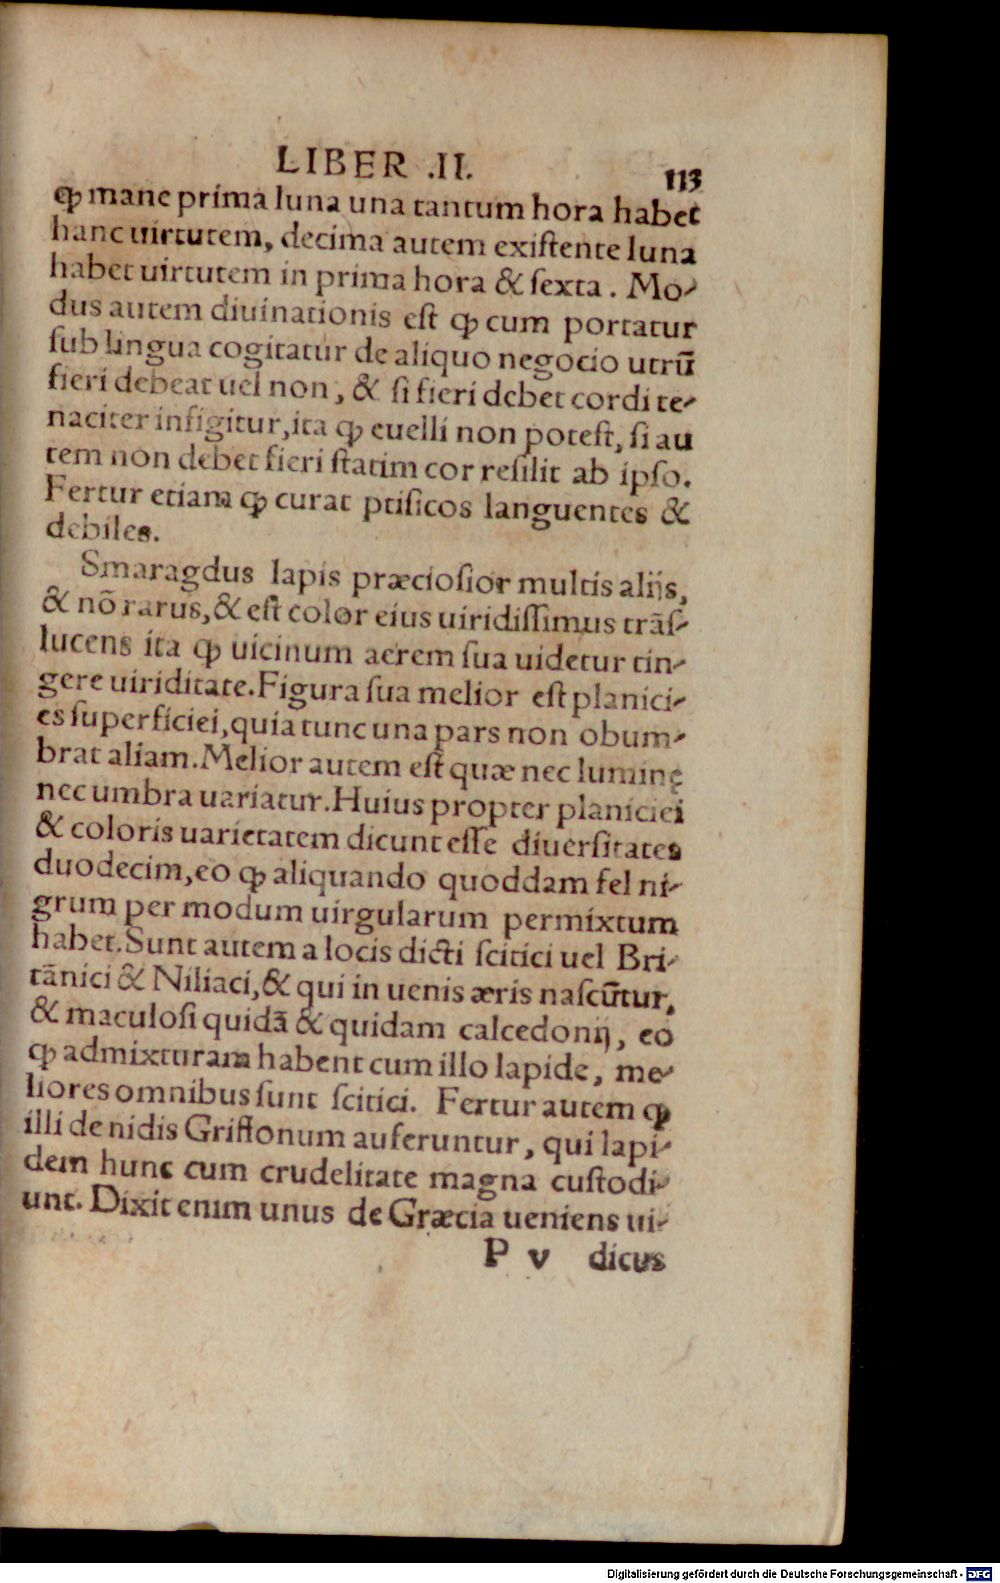 LIBER .II. 113
ꝙ mane prima luna una tantum hora habet
hanc uirtutem, decima autem exiſtente luna
habet uirtutem in prima hora & ſexta. Mo-
dus autem diuinationis eſt ꝙ cum portatur
ſub lingua cogitatur de aliquo negocio utrū
fieri debeat uel non, & ſi fieri debet cordi te-
naciter infigitur, ita ꝙ euelli non poteſt, ſi au
tem non debet fieri ſtatim cor reſilit ab ipſo.
Fertur etiam ꝙ curat ptiſicos languentes &
debiles.
Smaragdus lapis præcioſior multis alijs,
& nō rarus, & eſt color eius uiridiſſimus trāſ-
lucens ita ꝙ uicinum aerem ſua uidetur tin-
gere uiriditate. Figura ſua melior eſt planici-
es ſuperficiei, quia tunc una pars non obum-
brat aliam. Melior autem eſt quæ nec luminę
nec umbra uariatur. Huius propter planiciei
& coloris uarietatem dicunt eſſe diuerſitates
duodecim, eo ꝙ aliquando quoddam fel ni-
grum per modum uirgularum permixtum
habet. Sunt autem a locis dicti ſcitici uel Bri-
tānici & Niliaci, & qui in uenis æris naſcūtur,
& maculoſi quidā & quidam calcedonij, eo
ꝙ admixturam habent cum illo lapide, me-
liores omnibus ſunt ſcitici. Fertur autem ꝙ
illi de nidis Griffonum auferuntur, qui lapi-
dem hunc cum crudelitate magna cuſtodi-
unt. Dixit enim unus de Græcia ueniens ui-
P v dicus
Digitalisierung gefördert durch die Deutsche Forschungsgemeinschaft - DFG